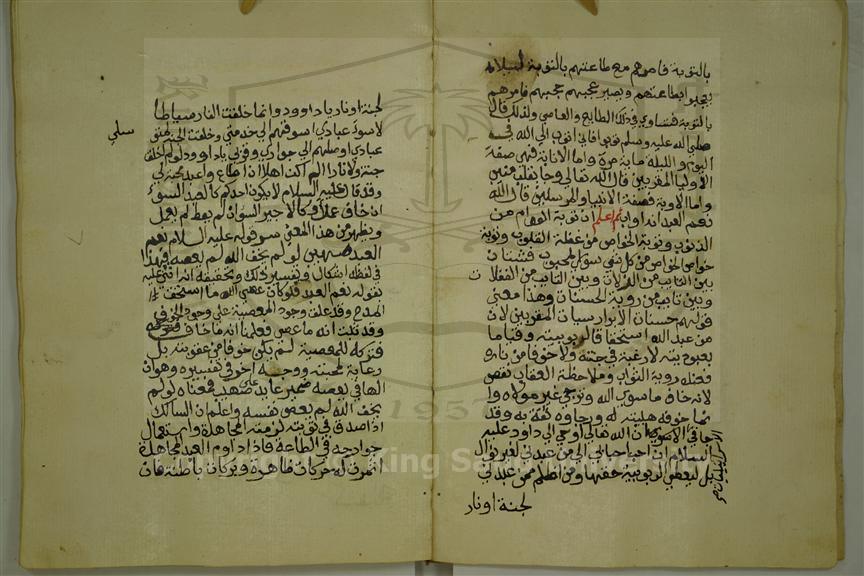 بالتوبة فامرهم مع طاعتهم بالتوبة ليلا
يعجبوا بطاعتهم ويصير عجبهم حجبهم فامرهم
بالتوبة فتساوى في ذلك الطايع والعاصي ولذلك قال
صلى الله عليه وسلم توبوا فاني اتوب الى الله في
اليوم والليلة ماية مرة واما الانابة فهي صفة
الاوليا المقربين قال الله تعالى وجا بقلب منيب
واما الاوبة فصفة الانبيا والمرسلين قال الله
نعم العبد انه اواب ثم اعلم ان توبة العوام من
الذنوب وتوبة الخواص من غفلة القلوب وتوبة
خواص الخواص من كل شي سوى المحبوب فشتان
بين التايب من الزلات وبين التايب من الغفلات
وبين تايب من روية الحسنات وهذا معنى
قولهم حسنات الابرار سيات المقربين لان
من عبد الله استحقاقا لربوبيته وقياما
بعبوديته لا رغبة في جنته ولا خوفا من ناره
فضله روية الثواب وملاحظة العقاب نقص
لانه خاف ما سوى الله وترجى غير مولاه وا
نما خوفه هيبته له ورجاوه ثقة به وقد
جا في ان الله تعالى اوحى الى داود عليه
السلام ان احب احبابي الي من عبدني لغير نوال
بل ليعطي الربوبية حقها ومن اظلم ممن عبدني
لجنة او نار
لجنة او نار يا داوود وانما خلقت النار سياطا
لاسود عبادي اسوقهم الى خدمتي وخلقت الجنة
عبادي اوصلهم الى جواري وقربي يا داوود لو لم اخلق
جنة ولا نارا الم اكن اهلا ان اطاع واعبد محبة لي
وقد قال عليه السلام لا يكون احدكم كالعبد السوء
ان خاف عمل ولا كالاجير السوء ان لم يعط لم يعمل
ويظهر من هذا المعنى سر قوله عليه السلام نعم
العبد صهيب لو لم يخف الله لم يعصه فهذا
في لفظه اشكال وتفسير ذلك وتحقيقه انه اثنى عليه
بقوله نعم العبد فلو كان عصى الله ما استحق
المدح وقد علق وجود المعصية على وجود الخوف
وقد ثبت انه ما عصى فعلمنا انه ما خاف
فتركه للمعصية لم يكن خوفا من عقوبته بل
رعاية لمحبته ووجه اخر في تفسيره وهو ان
الها في يعصه ضمير عايد على صهيب فمعناه لو لم
يخف الله لم يعص نفسه واعلم ان السالك
اذا صدق في توبته لزمته المجاهدة واستعمال
جوارحه في الطاعة فاذا داوم العبد المجاهدة
اثمرت له حركات ظاهرة وبركات باطنة فان
King Saud University
1957